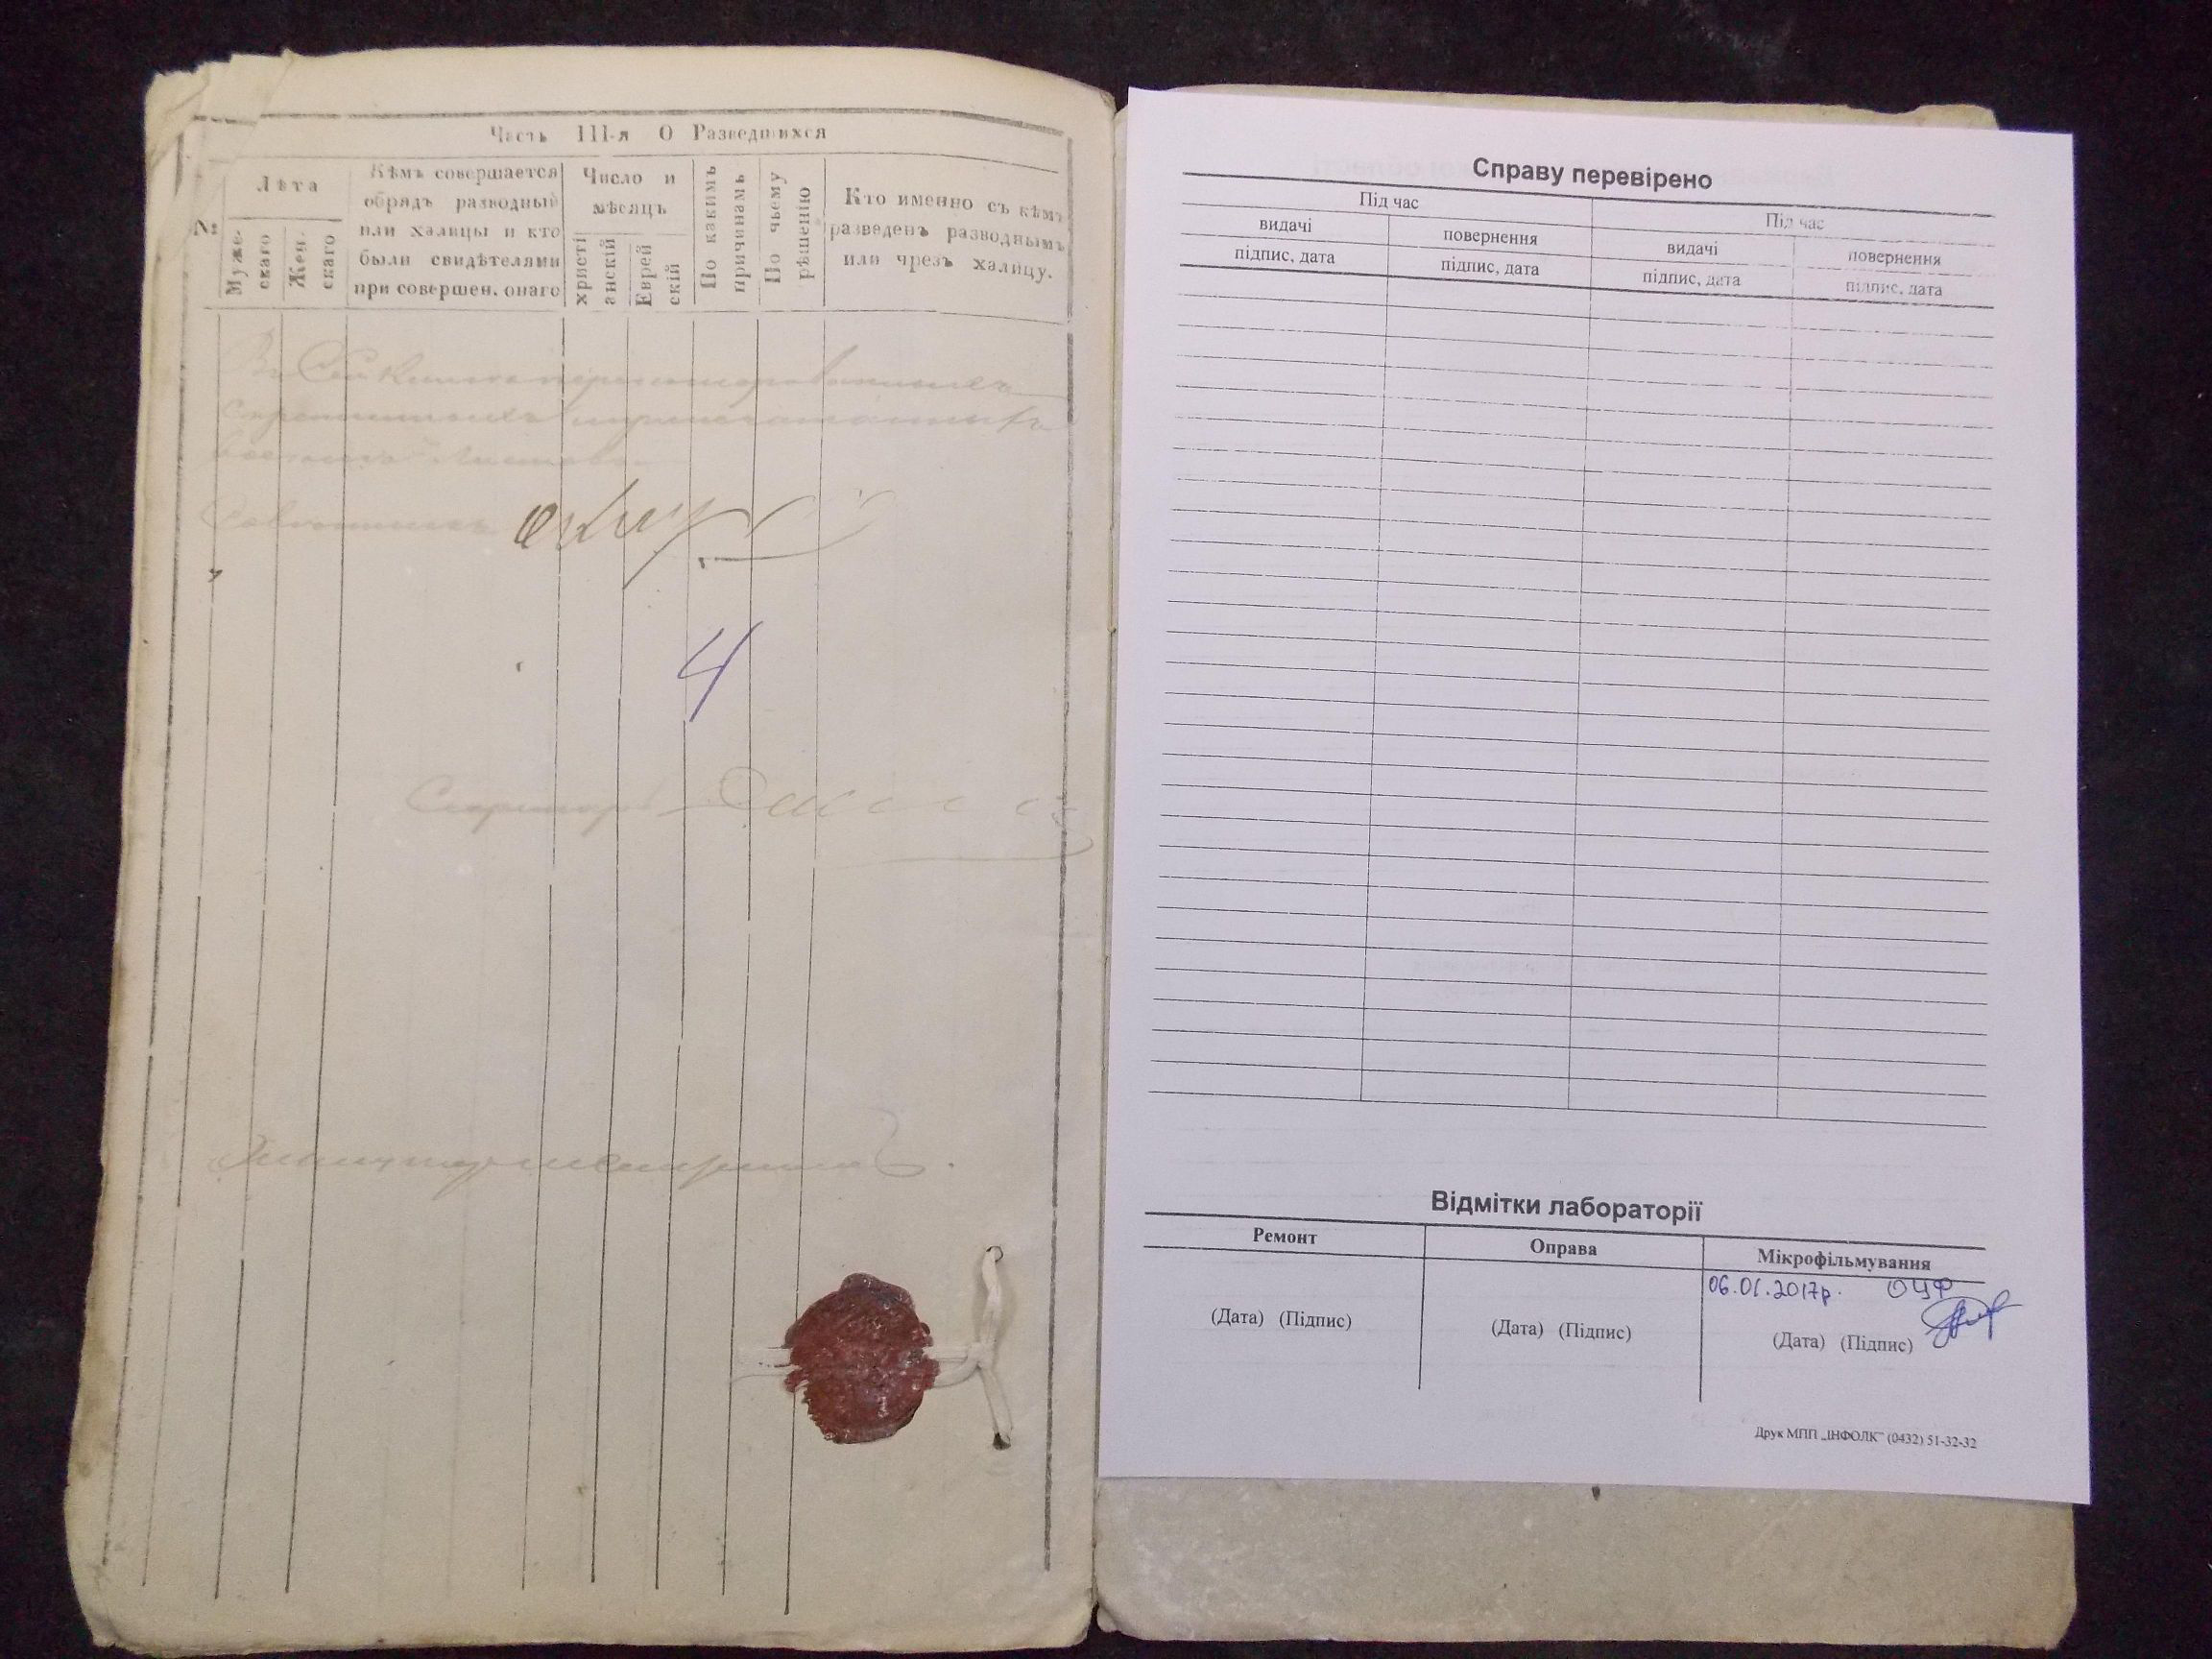 Часть III-я О Разведшихся
№
Лѣта
Муже-
скаго
Жен.
скаго
Кѣмъ совершается
обрядъ разводный
или халицы и кто
были свидѣтелями
при совершен. онаго
Число и
мѣсяцъ
христі
анскій
Еврей
скій
По какимъ
причинамъ
По чьему
рѣшенію
Кто именно съ кѣмъ
разведенъ разводнымъ
или чрезъ халицу.
В сей книге
листовъ
4
Секретарь
Справу перевірено
Під час
Під час
видачі
повернення
видачі
повернення
підпис, дата
підпис, дата
підпис, дата
підпис, дата
Відмітки лабораторії
Ремонт
Оправа
Мікрофільмування
06.01.2017р. ОЦФ
(Дата) (Підпис)
(Дата) (Підпис)
(Дата) (Підпис)
Друк МПП „ІНФОЛК" (0432) 51-32-32